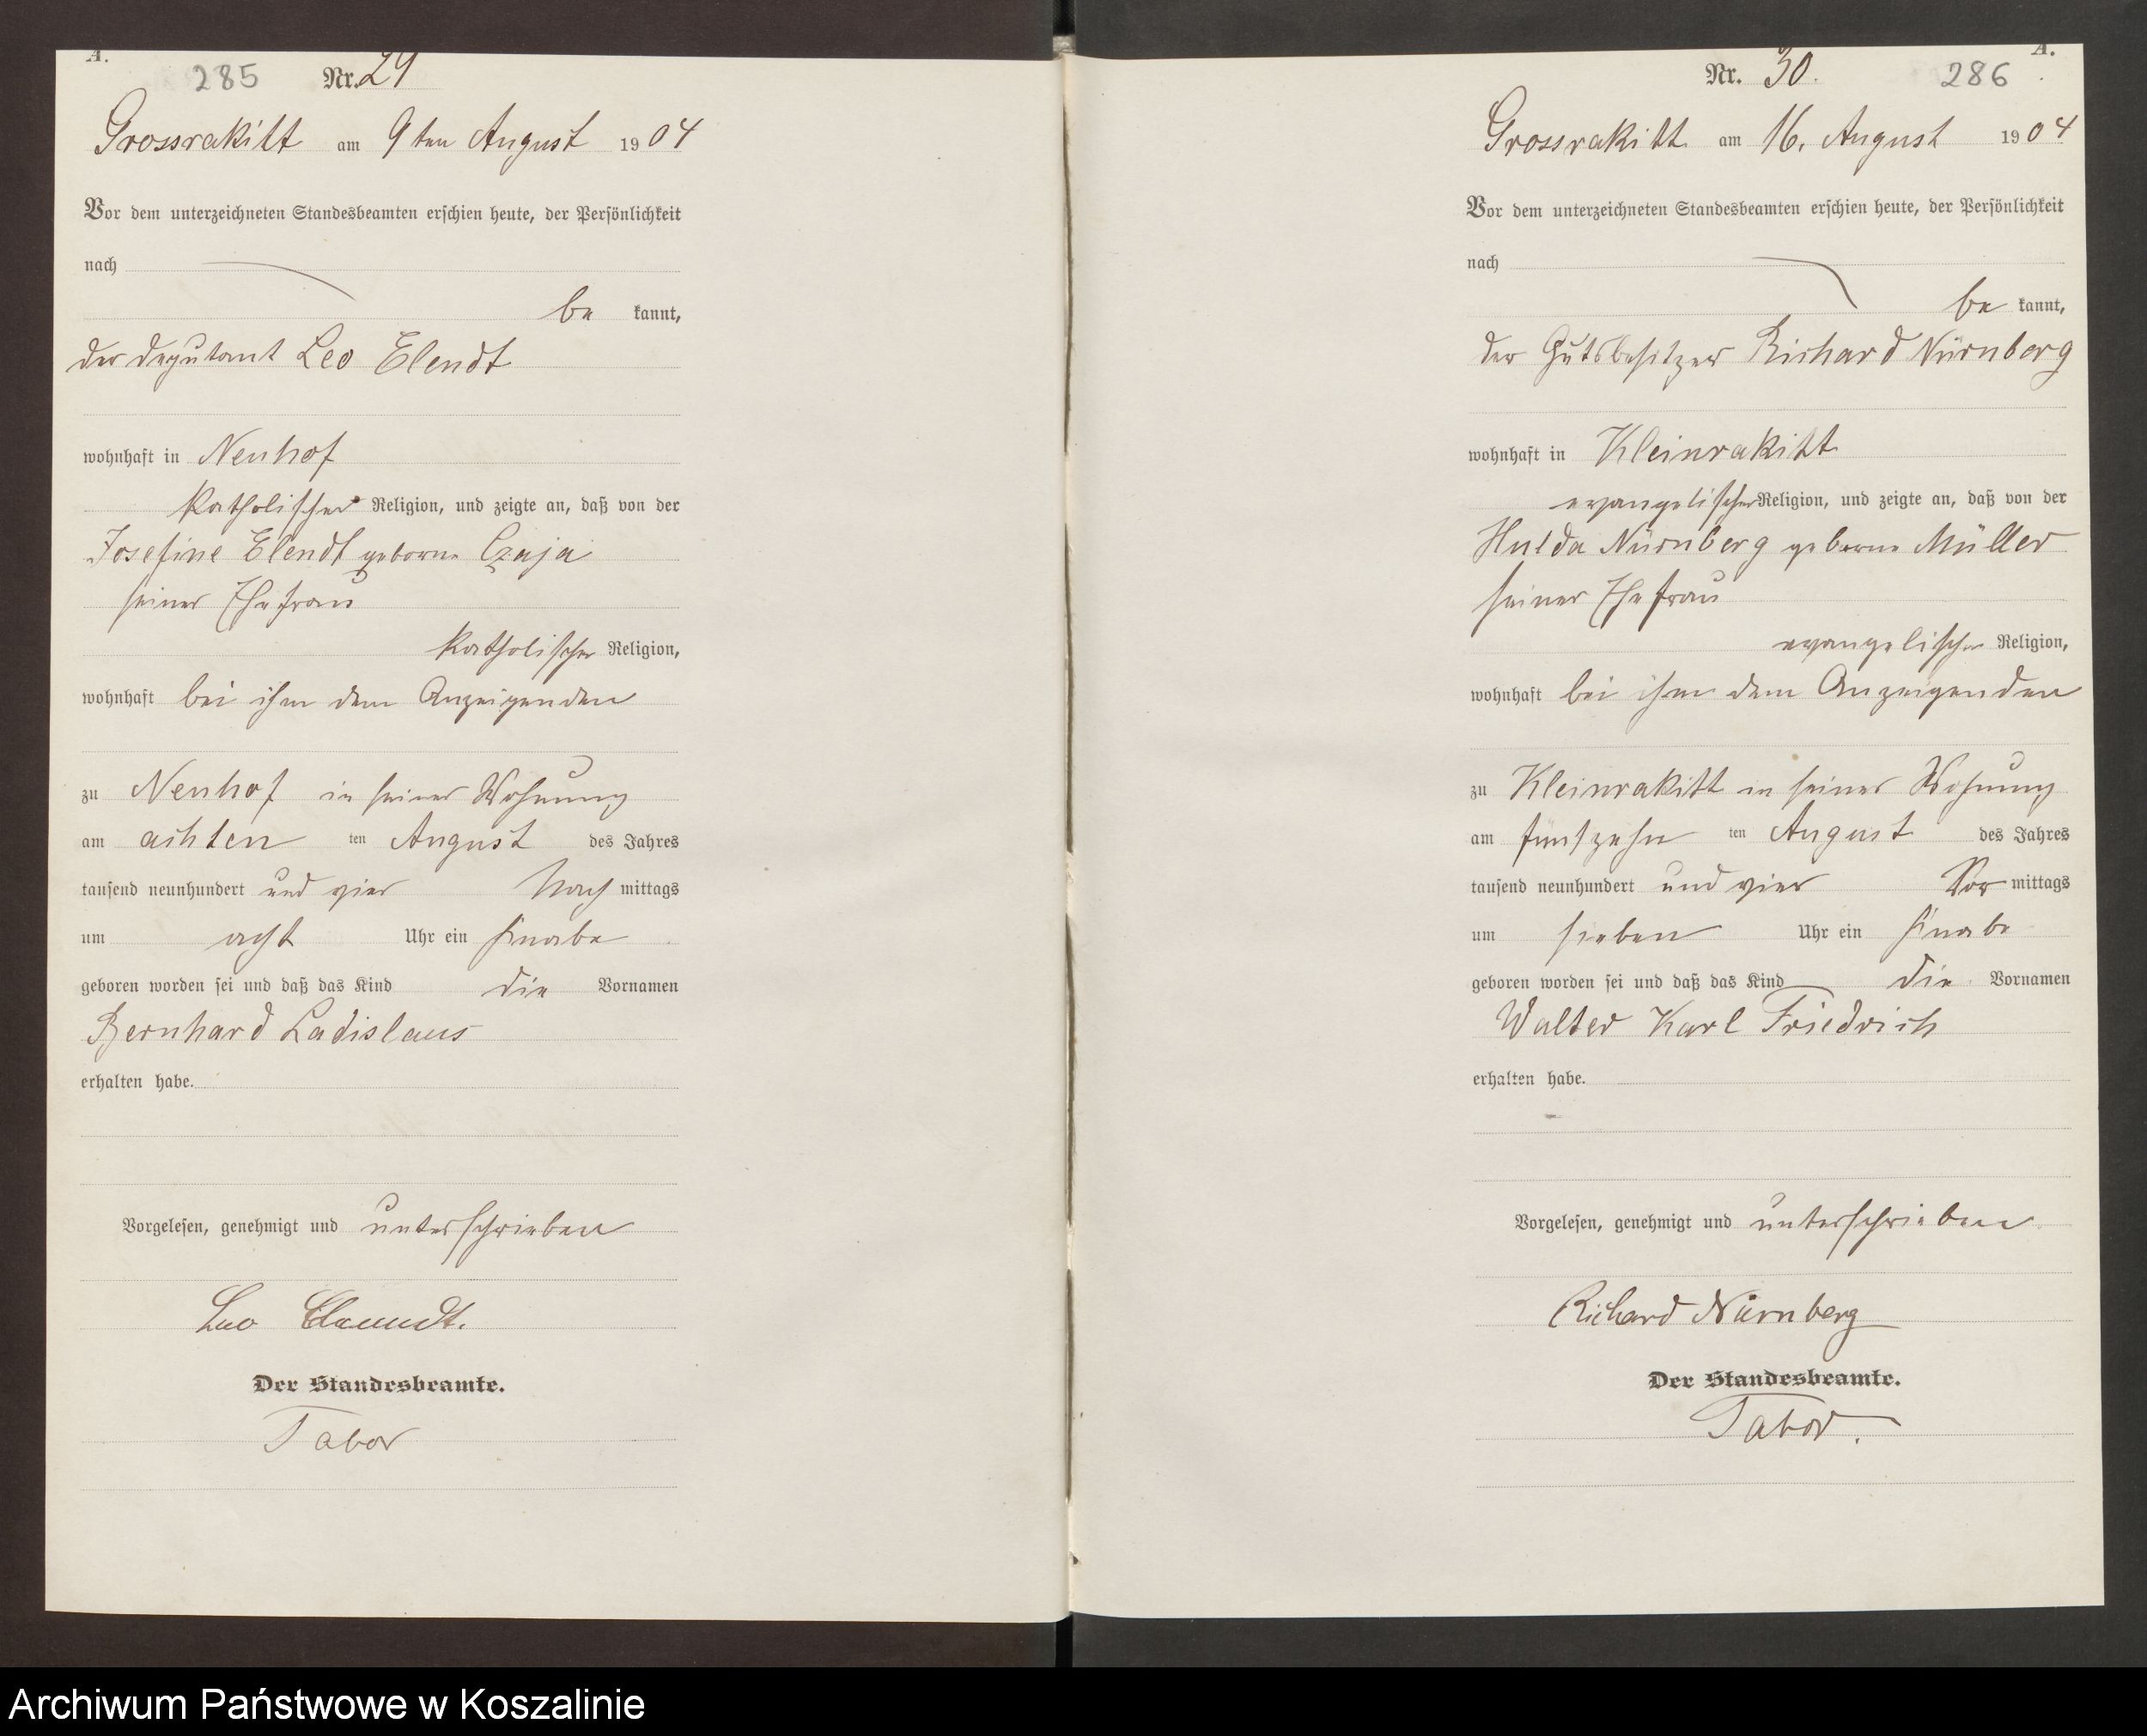 A.
285 Nr. 29
Grossrakitt am 9ten August 1904
Vor dem unterzeichneten Standesbeamten erschien heute, der Persönlichkeit
nach
be kannt,
der Deputant Leo Elendt
wohnhaft in Neuhof
katholischer Religion, und zeigte an, daß von der
Josefine Elendt geborne Czaja
seiner Ehefrau
katholischer Religion,
wohnhaft bei ihm dem Anzeigenden
zu Neuhof in seiner Wohnung
am achten ten August des Jahres
tausend neunhundert und vier Nach mittags
um acht Uhr ein Knabe
geboren worden sei und daß das Kind die Vornamen
Bernhard Ladislaus
erhalten habe.
Vorgelesen, genehmigt und unterschrieben
Leo
Der Standesbeamte.
Tabor
A.
Nr. 30. 286
Grossrakitt am 16. August 1904
Vor dem unterzeichneten Standesbeamten erschien heute, der Persönlichkeit
nach
be kannt,
der Gutsbesitzer Richard Nürnberg
wohnhaft in Kleinrakitt
evangelischer Religion, und zeigte an, daß von der
Hulda Nürnberg geborne Müller
seiner Ehefrau
evangelischer Religion,
wohnhaft bei ihm dem Anzeigenden
zu Kleinrakitt in seiner Wohnung
am fünfzehn ten August des Jahres
tausend neunhundert und vier Vor mittags
um sieben Uhr ein Knabe
geboren worden sei und daß das Kind die Vornamen
Walter Karl Friedrich
erhalten habe.
Vorgelesen, genehmigt und unterschrieben
Richard Nürnberg
Der Standesbeamte.
Tabor.
Archiwum Państwowe w Koszalinie